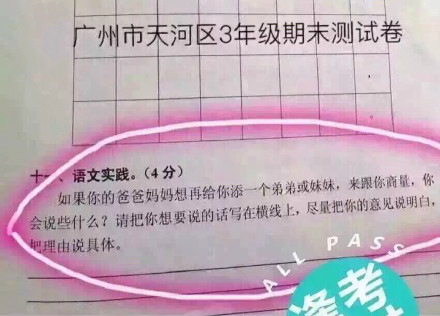 广州市天河区3年级期末测试卷
十一、语文实践。(4分)
如果你的爸爸妈妈想再给你添一个弟弟或妹妹，来跟你商量，你
会说些什么？请把你想要说的话写在横线上，尽量把你的意见说明白，
把理由说具体。
ALL PASS
逢考